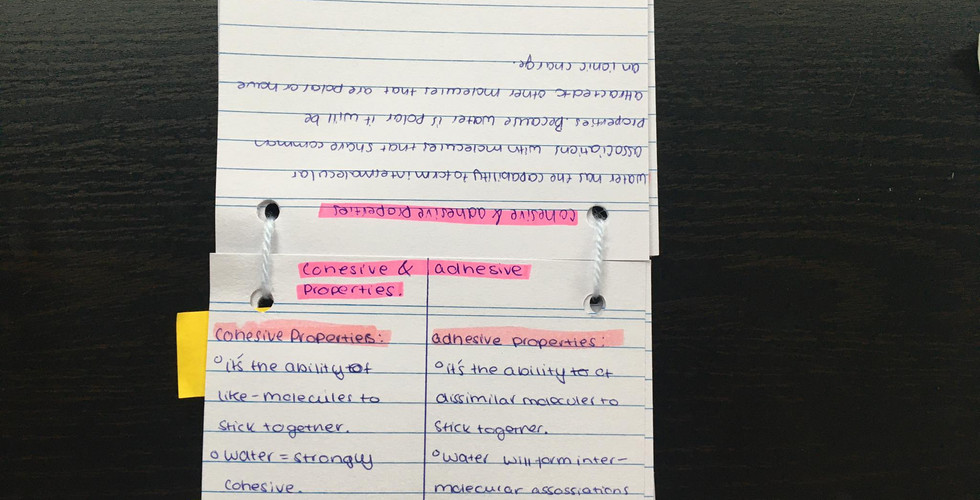 cohesive & adhesive properties
water has the capability to form intermolecular
associations with molecules that share common
properties. Because water is polar it will be
attracted to other molecules that are polar or have
an ionic charge.
Cohesive & adhesive
properties.
Cohesive Properties:
it's the ability of
like-molecules to
stick together.
water = strongly
cohesive.
adhesive properties:
it's the ability of
dissimilar molecules to
stick together.
water will form inter-
molecular assossiations